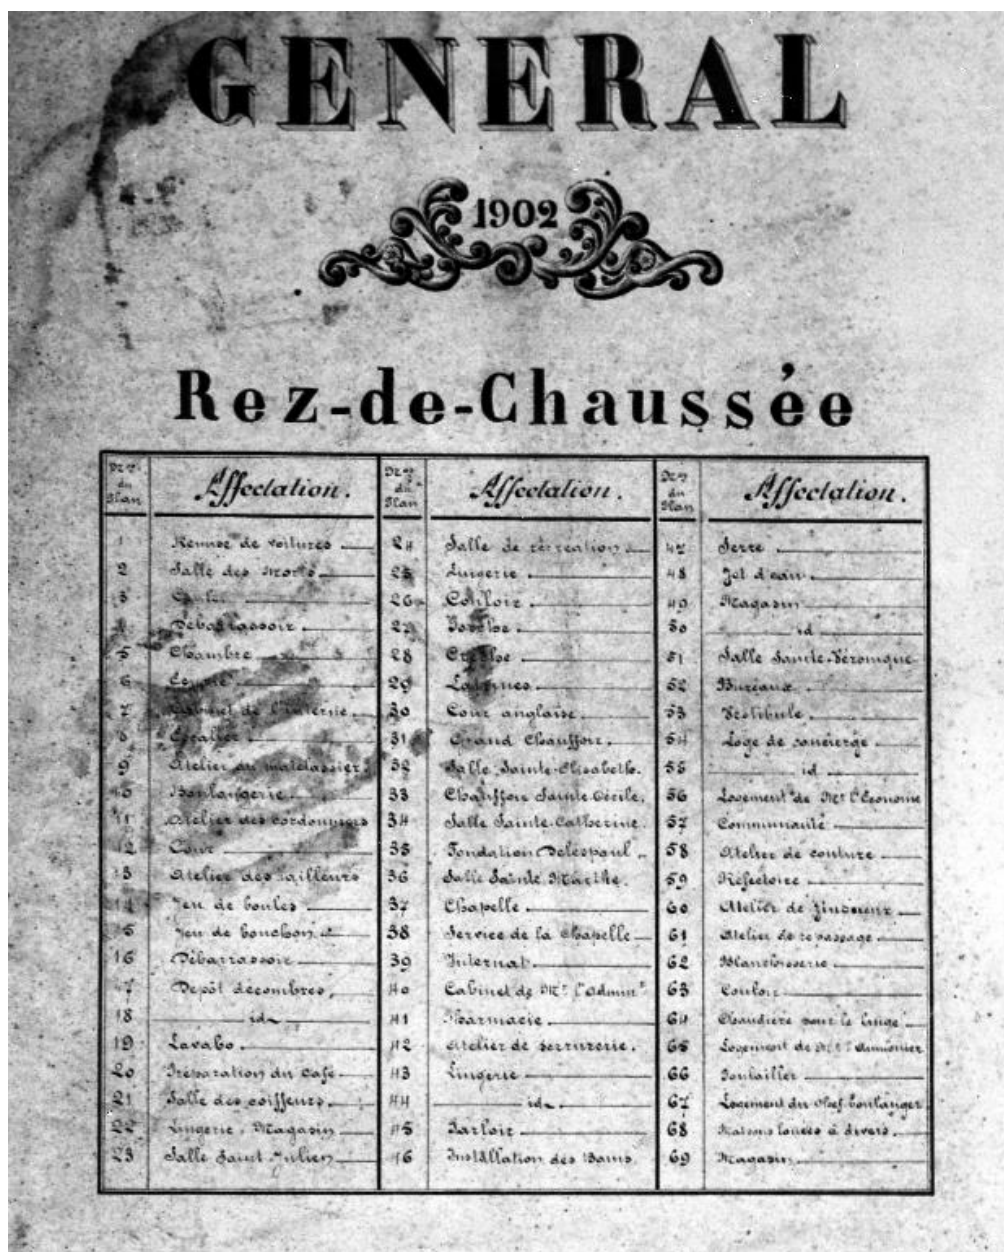 GENERAL
1902
Rez-de-Chaussée
Nos du Plan Affectation. Nos du Plan Affectation. Nos du Plan Affectation.
1 Remise de voitures 24 Salle de récréation 47 Serre
2 Salle des Morts 25 Lingerie 48 Jet d'eau
3 25 26 Couloir 49 Magasin
4 Débarrassoir 27 50 id
5 Chambre 28 Crèche 51 Salle Sainte-Véronique
6 29 Latrines 52 Bureaux
7 Cabinet de l'interne 30 Cour anglaise 53 Vestibule
8 Escalier 31 Grand Chauffoir 54 Loge de concierge
9 Atelier du matelassier 32 Salle Sainte-Elisabeth. 55 id
10 Boulangerie 33 Chauffoir Sainte Cécile. 56 Logement de Mr l'Econome
11 Atelier des cordonniers 34 Salle Sainte-Catherine. 57 Communauté
12 Cour 35 Fondation Delespaul 58 Atelier de couture
13 Atelier des tailleurs 36 Salle Sainte Marthe. 59 Réfectoire
14 Jeu de boules 37 Chapelle 60 Atelier de
15 Jeu de bouchon 38 Service de la Chapelle 61 Atelier de repassage
16 Débarrassoir 39 Internat 62 Blanchisserie
17 Dépôt décombres 40 Cabinet de Mr l'Admin 63 Couloir
18 id 41 Pharmacie 64 Chaudière pour le linge
19 Lavabo 42 Atelier de serrurerie. 65 Logement de Mr l'Aumônier
20 Préparation du café 43 Lingerie 66 Poulailler
21 Salle des coiffeurs 44 id 67 Logement du chef boulanger
22 Lingerie, Magasin 45 Parloir 68 Maisons louées à divers
23 Salle Saint Julien 46 Installation des Bains 69 Magasin